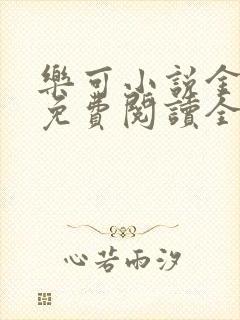 樂可小説全
免費閱讀全
心若雨汐